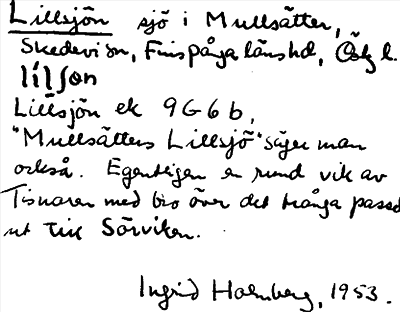 Lillsjön sjö i Mullsätter,
Skedevi sn, Finspånga länshd, Östg l.
lílson
Lillsjön ek 9G6b,
"Mullsätters Lillsjö" säger man
också. Egentligen en rund vik av
Tisnaren med bro över det trånga passet
ut till Sörviken.
Ingrid Holmberg, 1953.